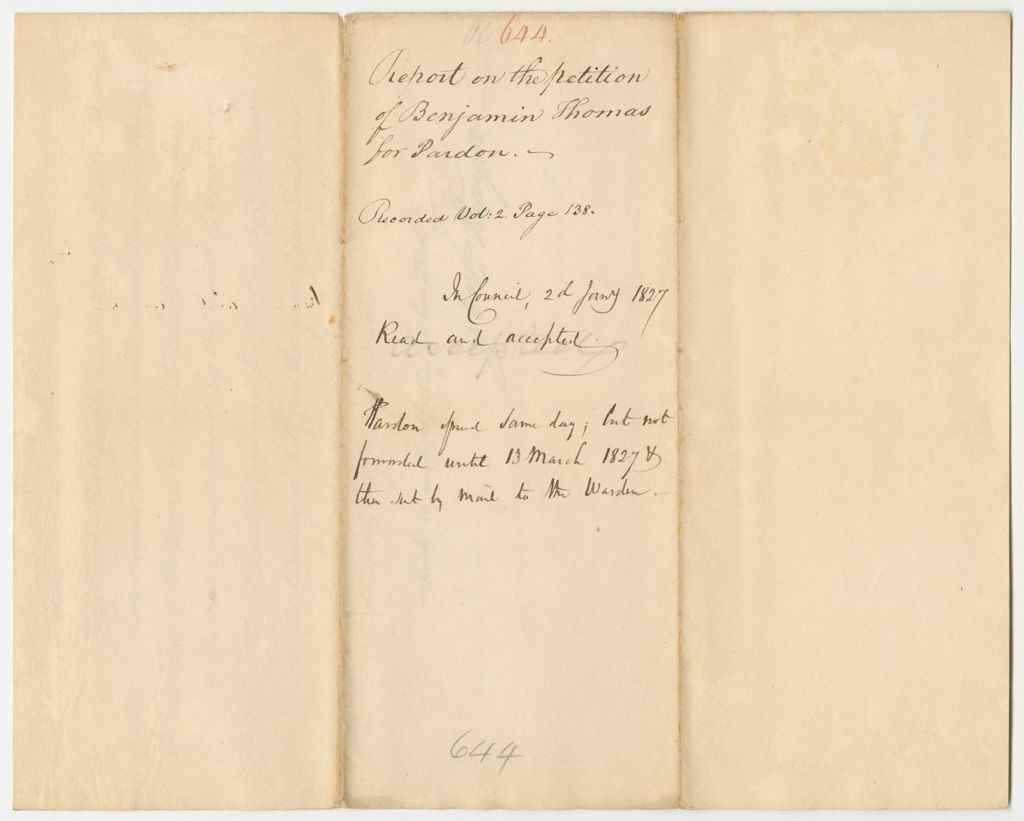 R 644.
Report on the petition
of Benjamin Thomas
for Pardon.
Recorded Vol: 2. Page 138.
In Council, 2d Jany 1827
Read and accepted.
Pardon issued same day; but not
forwarded until 13 March 1827 &
then sent by mail to the Warden.
644